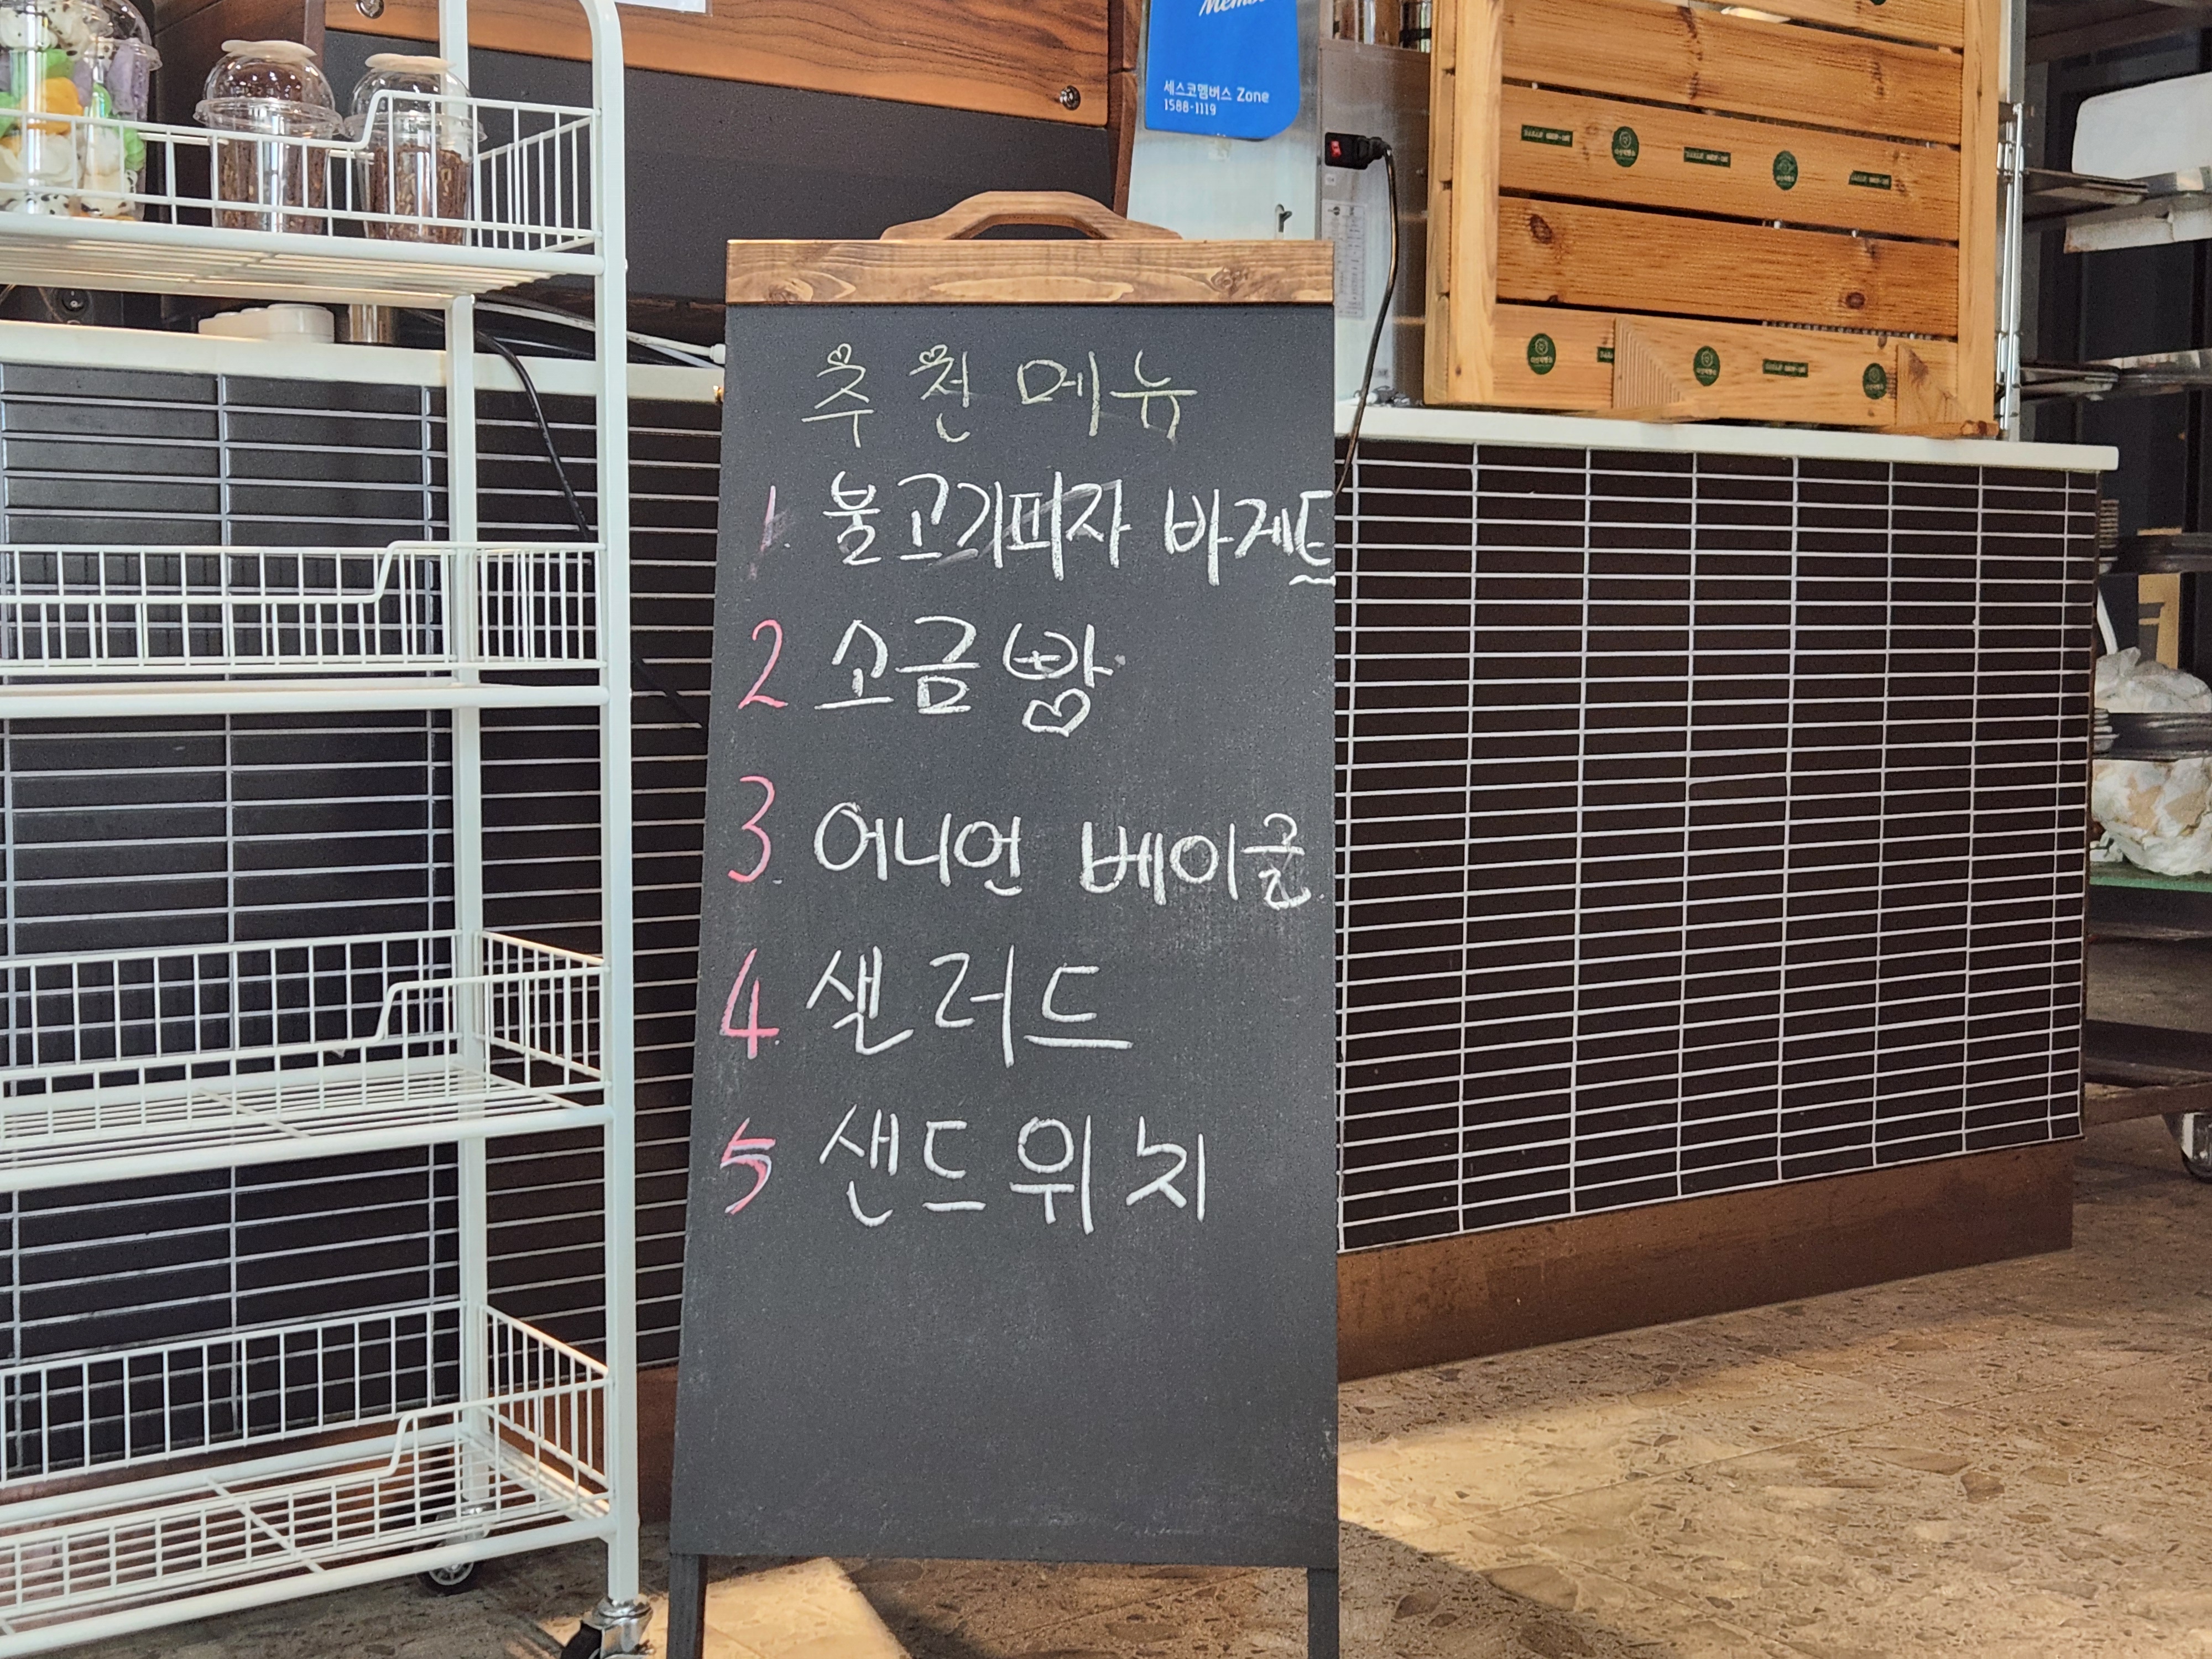 세스코멤버스 Zone
1588-1119
추천메뉴
1. 불고기피자 바게트
2 소금빵
3. 어니언 베이글
4. 샌러드
5 샌드위치